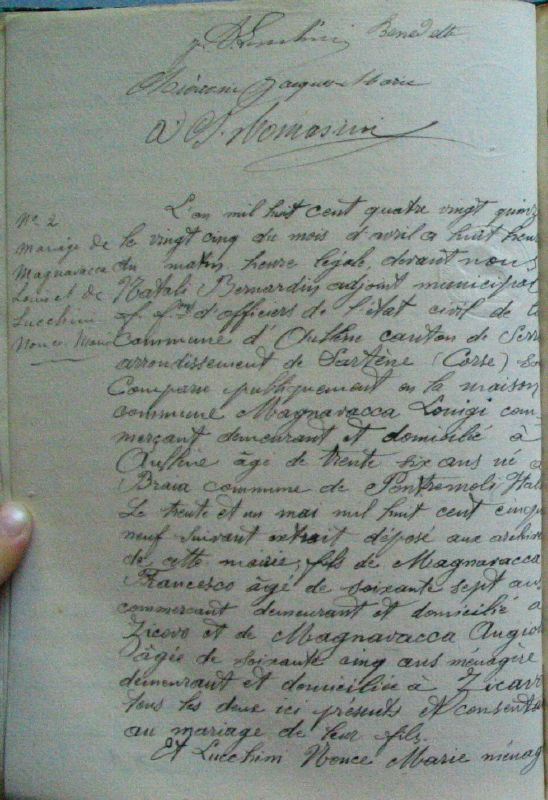 Benedetti
Jacques Marie
Tomasini
N° 2
Mariage de
Magnavacca
Louis et de
Lucchini
Nonce Marie
L'an mil huit cent quatre vingt quinze
le vingt cinq du mois d'avril a huit heure
du matin heure légale, devant nous
Natali Bernardin adjoint municipal
f. f. d'officiers de l'état civil de la
Commune d'Aullène canton de Serra
arrondissement de Sartène (Corse) Son
Comparu publiquement en la maison
commune Magnavacca Louigi com
merçant demeurant et domicilié à
Aullène âgé de trente six ans né a
Braia commune de Pontremoli Itali
Le trente et un mai mil huit cent cinqu
neuf suivant extrait déposé aux archive
de cette mairie; fils de Magnavacca
Francesco âgé de soixante sept ans
commercant demeurant et domicilié a
Zicavo et de Magnavacca Angiol
âgée de soixante cinq ans ménagère
demeurant et domiciliée à Zicavo
tous les deux ici présents et consenta
au mariage de leur fils.
Et Lucchini Nonce Marie ménag